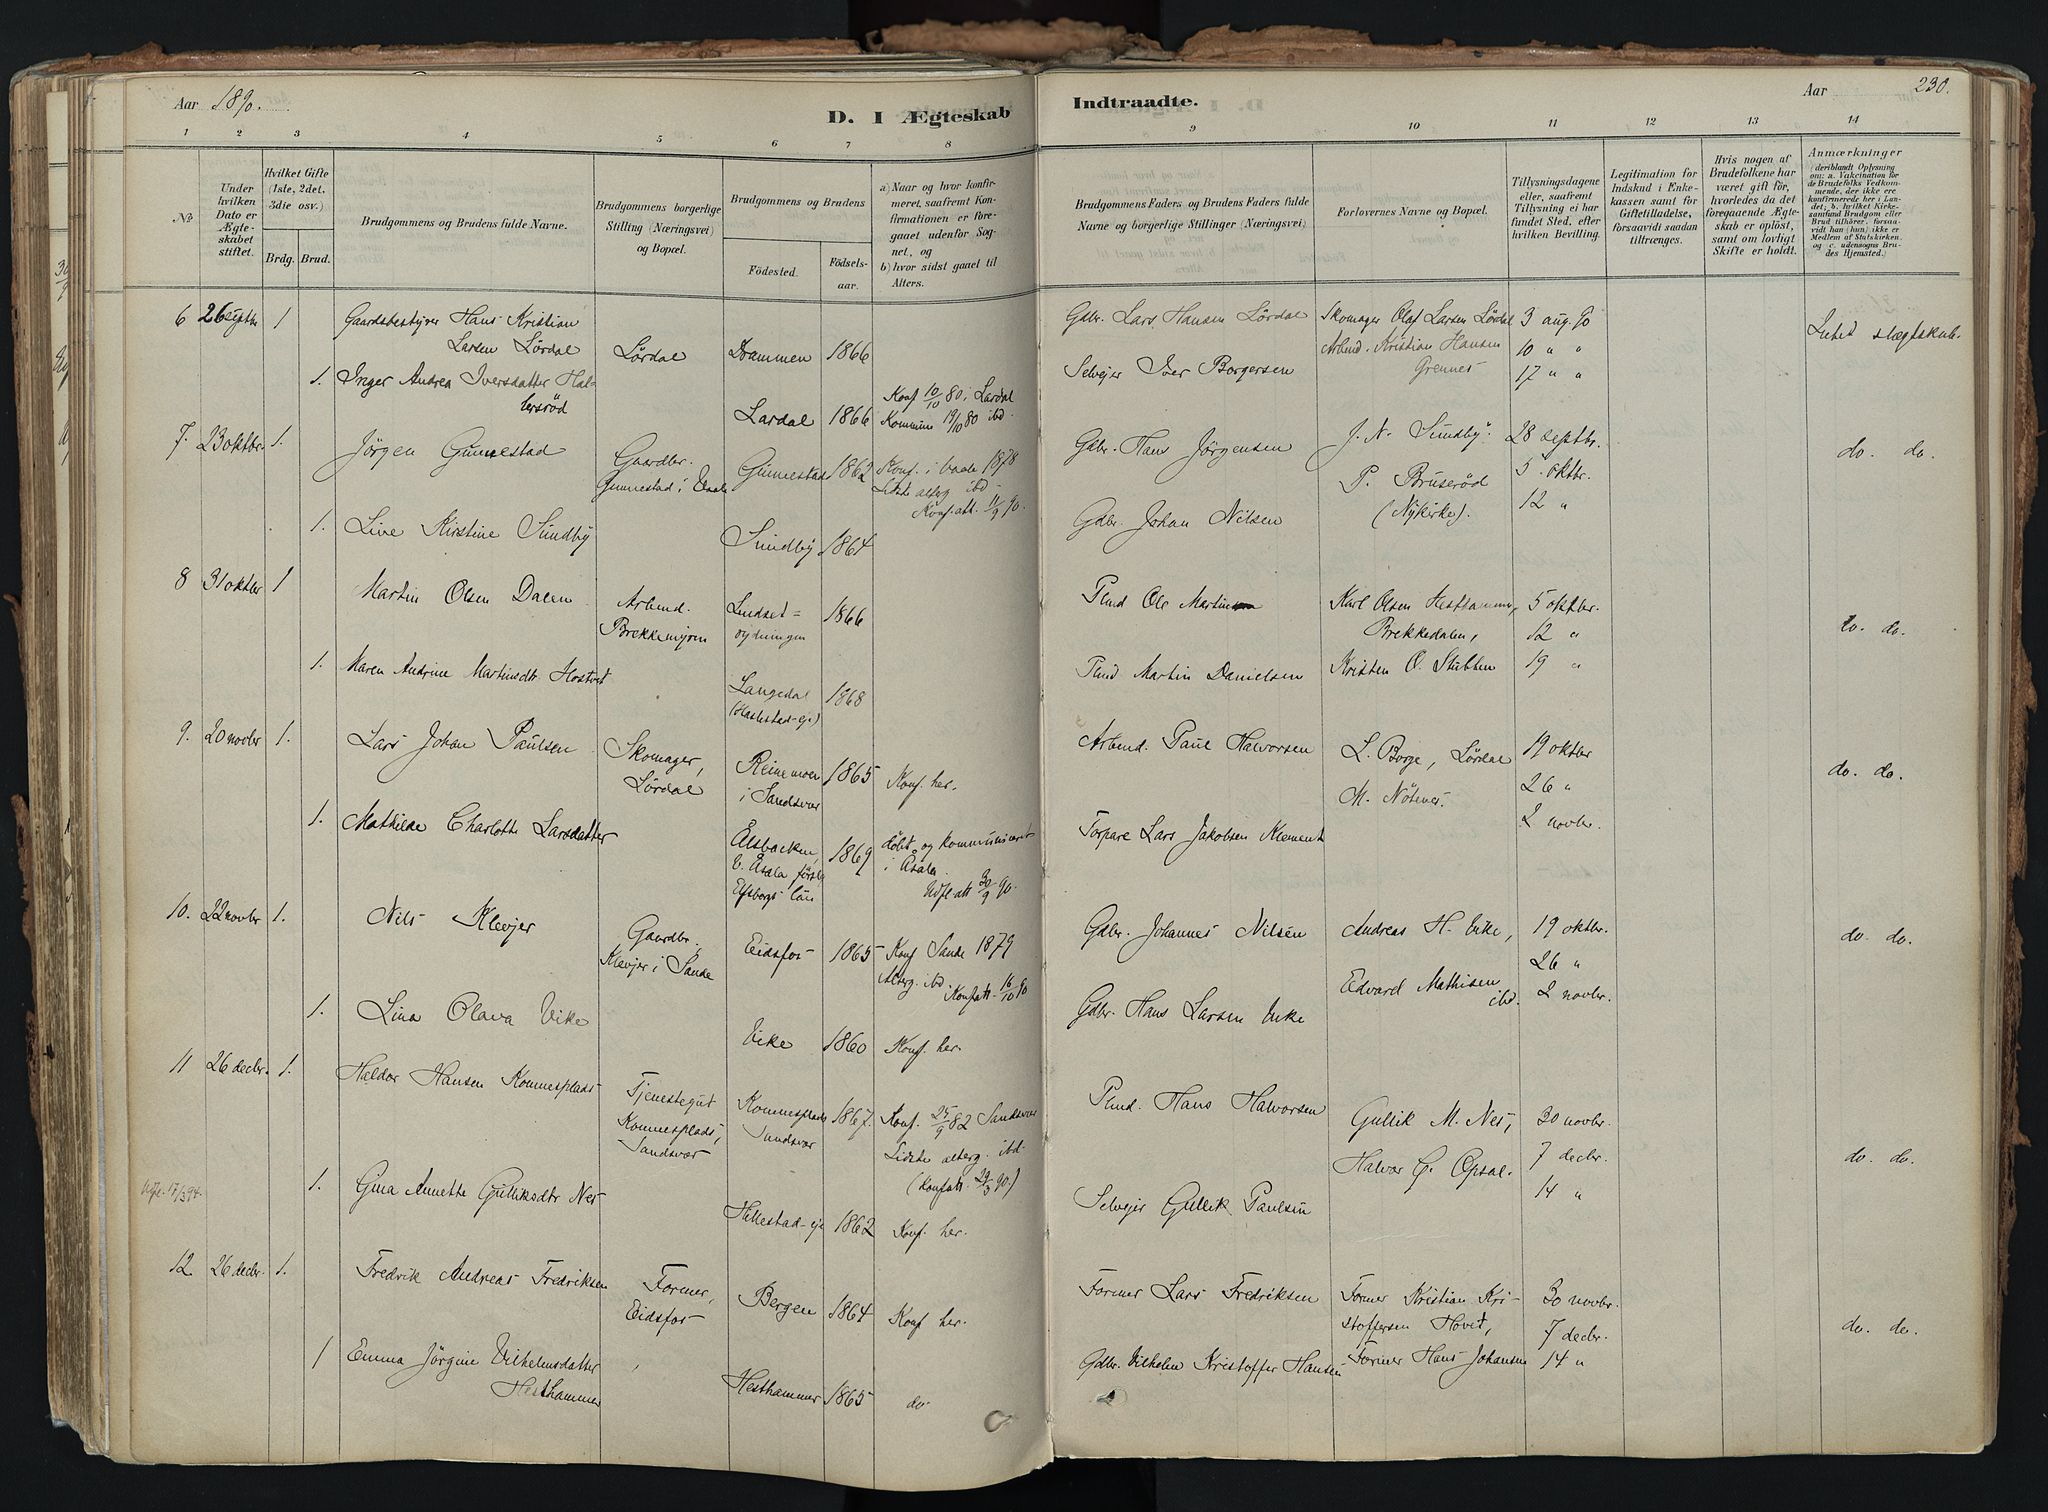 Aar 1890.
D. I Ægteskab
Indtraadte.
Aar
230.
1 2 3 4 5 6 7 8 9 10 11 12 13 14
No
Under hvilken Dato er Ægteskabet stiftet.
Hvilket Gifte (1ste, 2det. 3die osv.)
Brdg. Brud.
Brudgommens og Brudens fulde Navne.
Brudgommens borgerlige Stilling (Næringsvei) og Bopæl.
Brudgommens og Brudens
Födested.
Födselsaar.
a) Naar og hvor konfirmeret, saafremt Konfirmationen er foregaaet udenfor Sognet, og
b) hvor sidst gaaet til Alters.
Brudgommens Faders og Brudens Faders fulde Navne og borgerlige Stillinger (Næringsvei)
Forlovernes Navne og Bopæl.
Tillysningsdagene eller, saafremt Tillysning ei har fundet Sted, efter hvilken Bevilling.
Legitimation for Indskud i Enkekassen samt for Giftetilladelse, forsaavidt saadan tiltrænges.
Hvis nogen af Brudefolkene har været gift för, hvorledes da det foregaaende Ægteskab er oplöst, samt om lovligt Skifte er holdt.
Anmærkninger
(deriblandt Oplysning om: a. Vakcination for de Brudefolks Vedkommende, der ikke ere konfirmerede her i Landet; b. hvilket Kirkesamfund Brudgom eller Brud tilhörer, forsaavidt han (hun) ikke er Medlem af Statskirken, og c. udensogns Brudes Hjemsted.)
6 26 septbr 1
Gaardsbestyrer Hans Kristian
Larsen Lørdal
Lørdal
Drammen 1866
Gdbr. Lars Hansen Lørdal
Skomager Olaf Larsen Lørdal
Arbmd. Kristian Hansen
Grennes
3 aug. 90
10 " "
17 " "
Intet slægtskab.
1. Inger Andrea Iversdatter Hal-
bersrød
Lardal 1866
Konf 10/10 80 i Lardal
Kommun 19/10 80 ibd.
Selvejer Iver Borgersen
7. 23 oktbr. 1.
Jörgen Gunnestad
Gaardbr.
Gunnestad i Vaale
Gunnestad 1862
Konf. i Vaale 1878
Sidste alterg. ibd
Konf. att. 11/9 90.
Gdbr. Hans Jörgensen
J. N. Sundby.
P. Bruserød
(Nykirke).
28 septbr.
5. oktbr.
12 "
do. do.
1. Line Kirstine Sundby
Sundby 1864
Gdbr. Johan Nilsen
8 31 oktbr 1
Martin Olsen Dalen
Arbmd.
Brekkemyren
Lindset=
rydningen
1866
Plmd Ole Martinsen
Karl Olsen Hesthammer,
Brekkedalen,
Kristen O. Stubben
5 oktbr.
12 "
19 "
do. do.
1. Maren Andrine Martinsdtr Hostvet
Langedal
(Haslestad-eje)
1868
Plmd Martin Danielsen
9. 20 novbr 1.
Lars Johan Paulsen
Skomager,
Lørdal
Reinemoen
i Sandsvær
1865
Konf. her.
Arbmd. Paul Halvorsen
L. Borge, Lørdal
M. Nötenes.
19 oktbr
26 "
2 novbr.
do. do.
1. Mathilde Charlotte Larsdatter
1869
döbt og kommuniceret
i Åsala.
Udfl. att 30/9 90.
Torpare Lars Jakobsen Klement
10. 22 novbr 1.
Nils Klevjer
Gaardbr.
Klevjer i Sande
Eidsfos 1865
Konf Sande 1879
Alterg. ibd
Konf att. 16/10 90
Gdbr. Johannes Nilsen
Andreas H. Vike,
Edvard Mathisen
ibd.
19 oktbr.
26 "
2 novbr.
do. do.
1. Lina Olava Vike
Vike 1860 Konf. her.
Gdbr. Hans Larsen Vike
11 26 decbr. 1.
Haldor Hansen Kommesplads
Tjenestegut
Kommesplads,
Sandsvær
Kommesplads
Sandsvær
1867.
Konf. 25/9 82 Sandsvær
Sidste alterg. ibd.
(Konf att. 29/3 90.)
Plmd. Hans Halvorsen
Gullik M. Nes,
Halvor G. Opsal.
30 novbr.
7 decbr.
14 "
do. do.
17/3 94.
1. Gina Annette Gulliksdtr Nes
Hillestad-eje 1862 Konf. her.
Selvejer Gullik Paulsen
12. 26 decbr. 1.
Fredrik Andreas Fredriksen
Former,
Eidsfos
Bergen 1864 Konf her.
Former Lars Fredriksen
Former Kristian Kri-
stoffersen Hovet,
Former Hans Johansen
30 novbr
7 decbr.
14 "
do. do.
1 Emma Jørgine Vilhelmsdatter
Hesthammer
Hesthammer 1865 do
Gdbr. Vilhelm Kristoffer Hansen